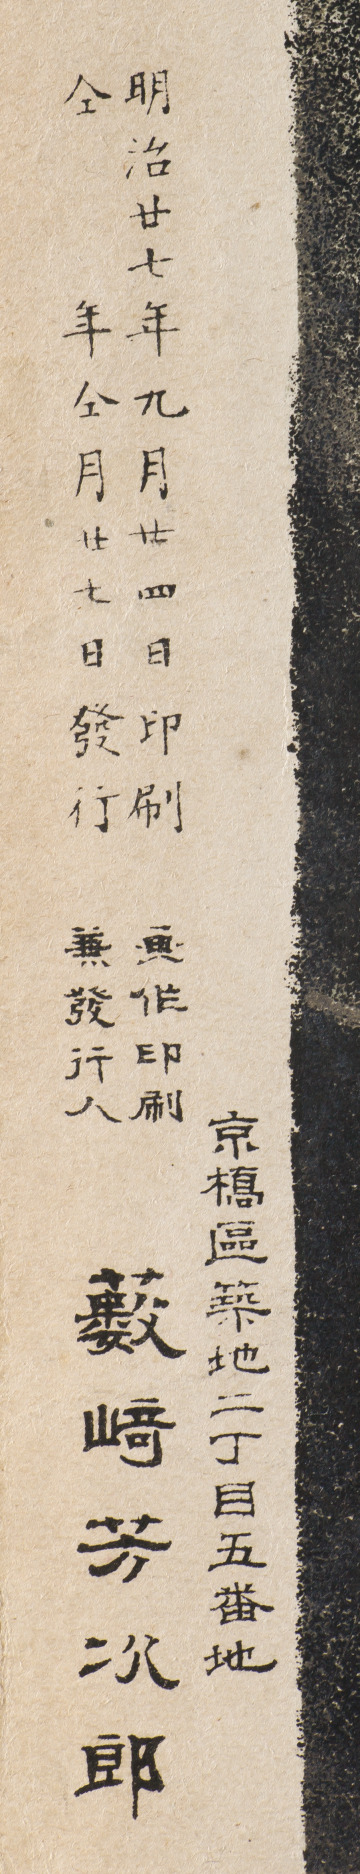 京橋區築地二丁目五番地
明治廿七年九月廿四日印刷
仝年仝月廿七日發行
画作印刷
兼發行人
藪﨑芳次郎